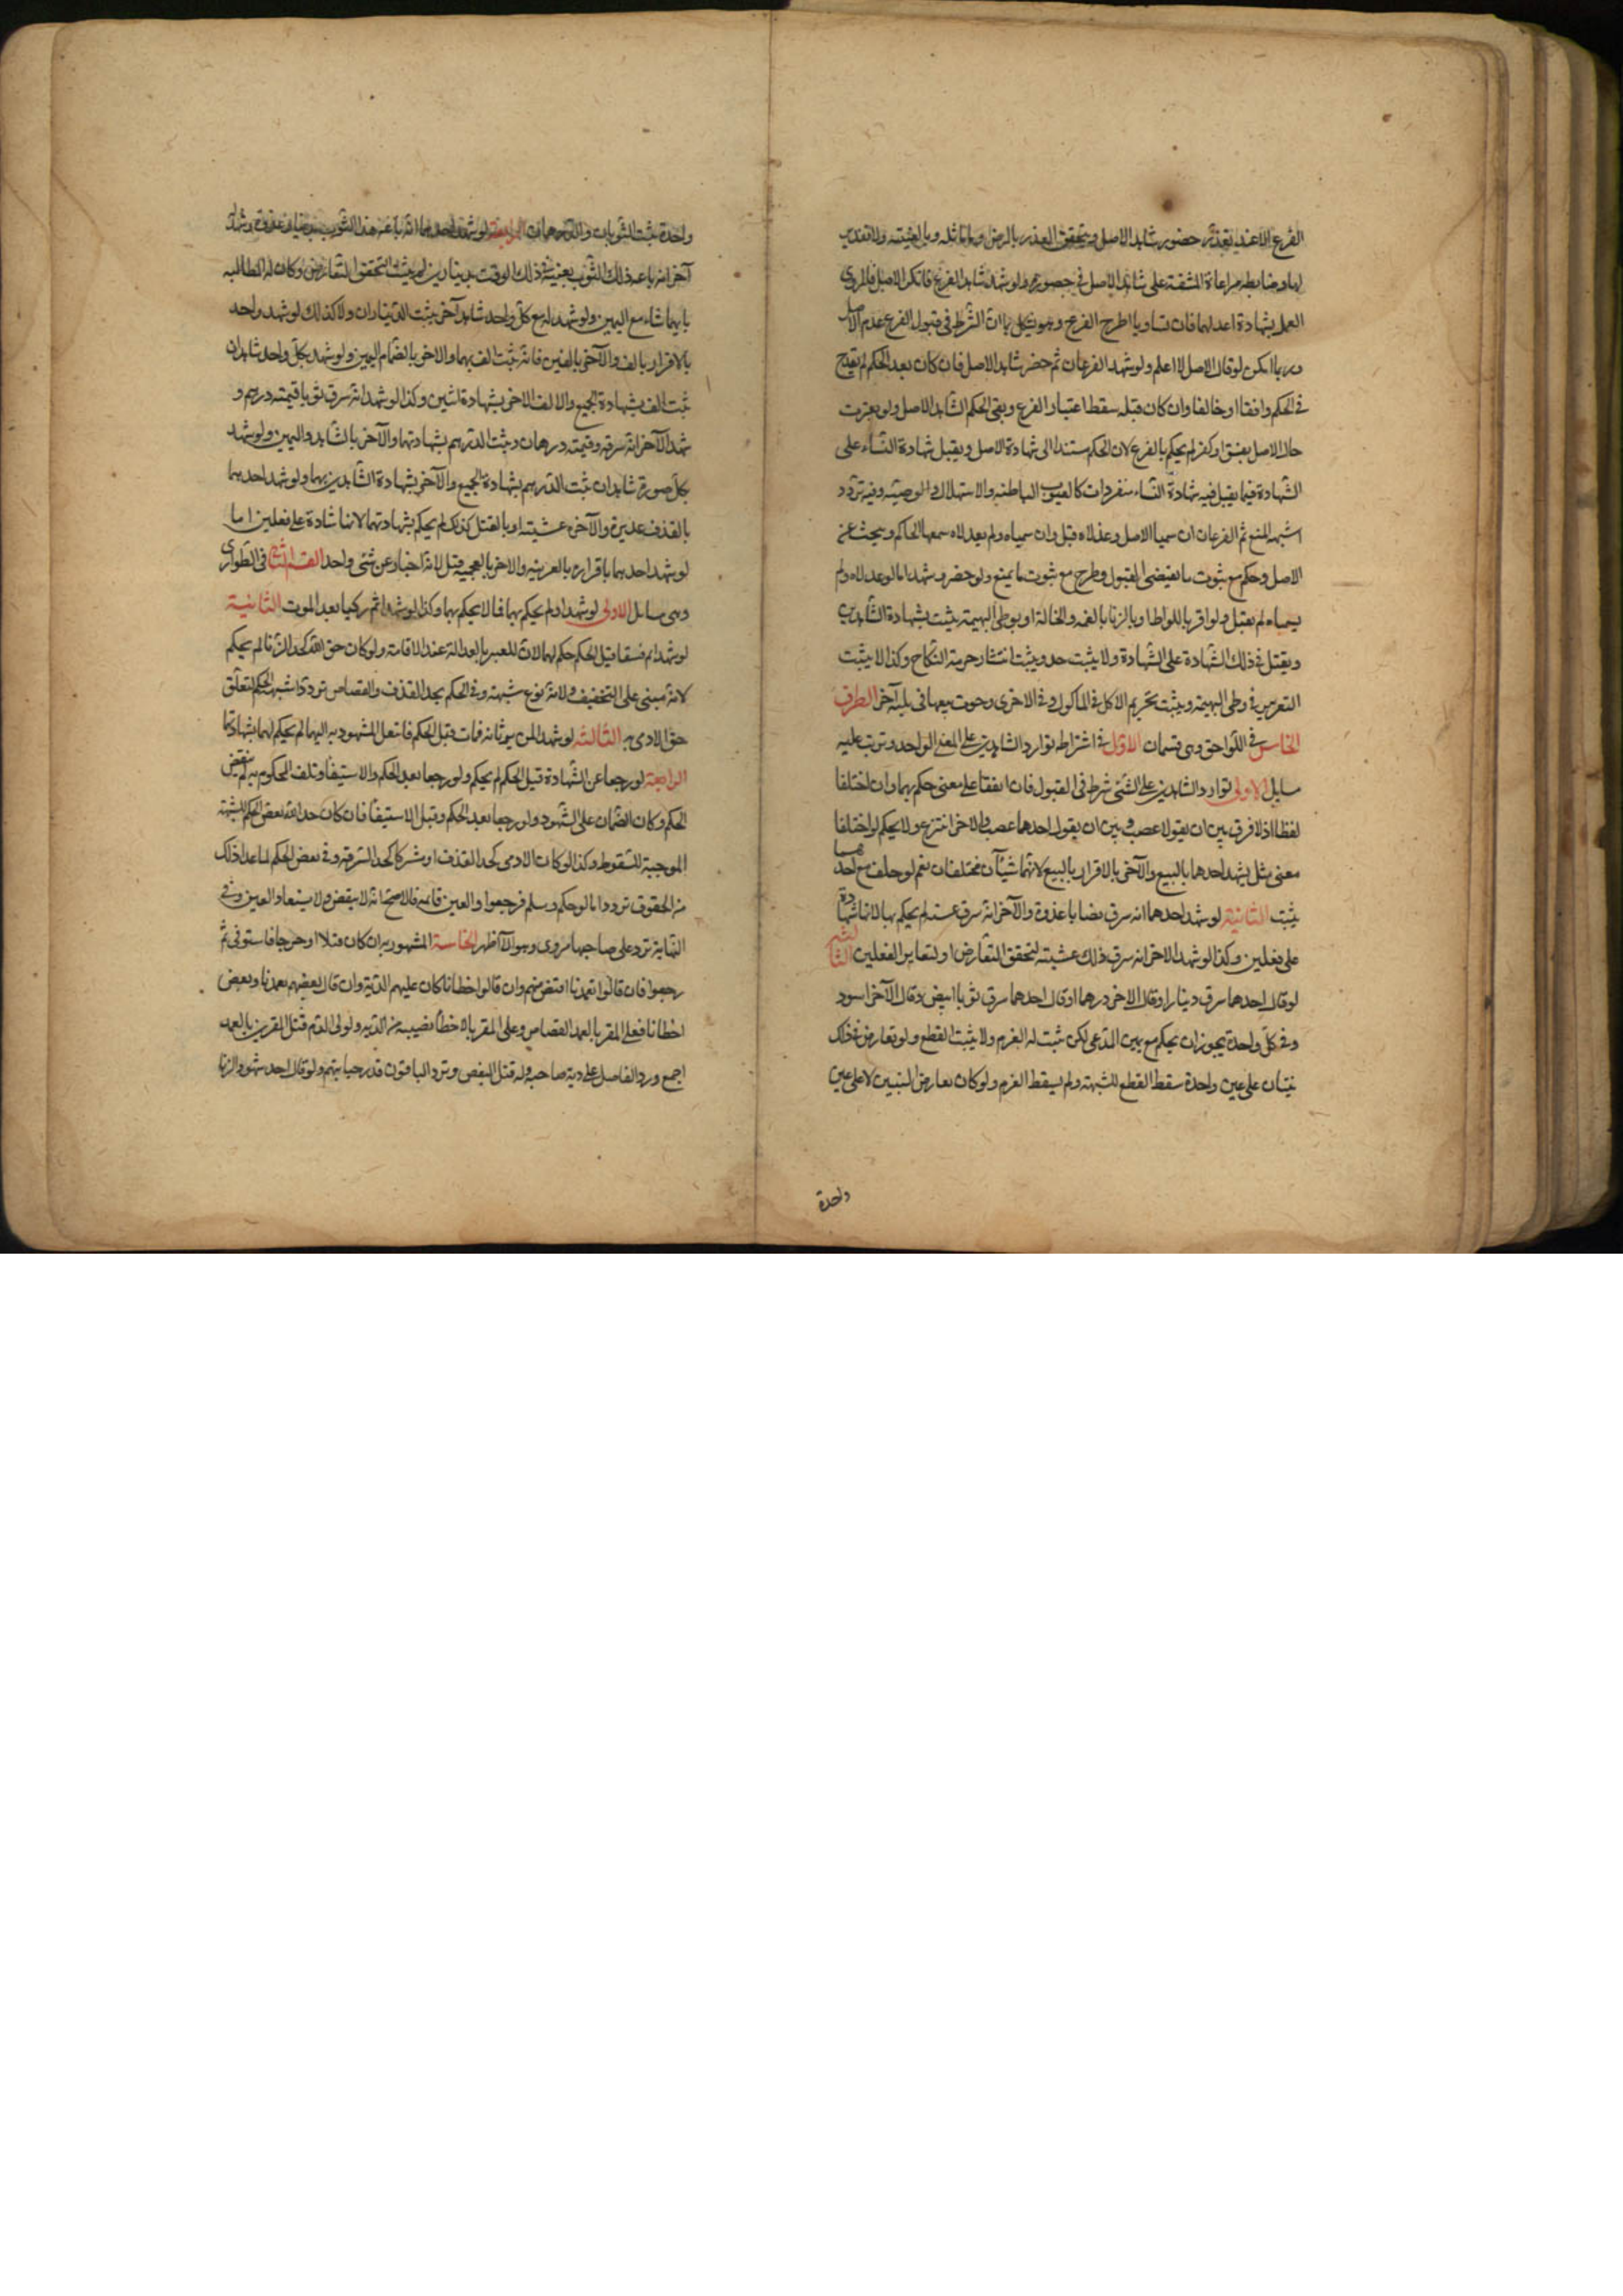 الفرع الا عند تعذر حضور شاهد الاصل ويتحقق العذر بالمرض وما ماثله وبالغيبة ولا تقدير
لها وضابطه مراعاة المشقة على شاهد الاصل في حضوره ولو شهد شاهد الفرع فانكر الاصل فالمروي
العمل بشهادة اعدلهما فان تساويا اطرح الفرع وهو يشكل بان الشرط في قبول الفرع عدم الاصل
وربما امكن لو قال الاصل لا اعلم ولو شهد الفرعان ثم حضر شاهد الاصل فان كان بعد الحكم لم يقدح
في الحكم وافقا او خالفا وان كان قبله سقط اعتبار الفرع وبقى الحكم لشاهد الاصل ولو تغيرت
حال الاصل بفسق او كفر لم يحكم بالفرع لان الحكم مستند الى شهادة الاصل ويقبل شهادة النساء على
الشهادة فيما يقبل فيه شهادة النساء منفردات كالعيوب الباطنة والاستهلال والوصية وفيه تردد
اشبهه المنع ثم الفرعان ان سميا الاصل وعدلاه قبل وان سمياه ولم يعدلاه سمعها الحاكم وبحث عن
الاصل وحكم مع ثبوت ما يقتضى القبول وطرح مع ثبوت ما يمنع ولو حضر وشهد اما لو عدلاه ولم
يسمياه لم تقبل ولو اقر باللواط او بالزنا بالعمة والخالة او بوطى البهيمة يثبت بشهادة الشاهدين
ويقبل في ذلك الشهادة على الشهادة ولا يثبت حد ويثبت انتشار حرمة النكاح وكذا لا يثبت
التعزير في وطى البهيمة ويثبت تحريم الاكل في الماكول وفي الاخرى وجوب بيعها في بلد آخر الطرف
الخامس في اللواحق وهى قسمان الاول في اشتراط توارد الشاهدين على المعنى الواحد وترتب عليه
مسايل الاولى توارد الشاهدين على الشئ شرط في القبول فان اتفقا على معنى حكم بهما وان اختلفا
لفظا اذ لا فرق بين ان يقولا غصب وبين ان يقول احدهما غصب والاخر انتزع ولا يحكم لو اختلفا
معنى مثل يشهد احدهما بالبيع والآخر بالاقرار بالبيع لانهما شيئان مختلفان نعم لو حلف مع احدهما
يثبت الثانية لو شهد احدهما انه سرق نصابا غدوة والآخر انه سرق عشية لم يحكم بها لانها شهادة
على فعلين وكذا لو شهد الاخر انه سرق ذلك عشية لتحقق التعارض او لتغاير الفعلين الثالثة
لو قال احدهما سرق دينارا وقال الاخر درهما او قال احدهما سرق ثوبا ابيض وقال الآخر اسود
وفي كل واحدة يجوز ان يحكم مع يمين المدعى لكن يثبت له الغرم ولا يثبت القطع ولو تعارض في ذلك
بينتان على عين واحدة سقط القطع للشبهة ولم يسقط الغرم ولو كان تعارض البينتين لا على عين
واحدة
واحدة يثبت الثوبان والدرهمان الرابعة لو شهد احدهما انه باعه هذا الثوب بدينار غدوة وشهد
آخر انه باعه ذلك الثوب بعينه في ذلك الوقت بدينارين لم يثبت التحقق التعارض وكان له المطالبة
بايهما شاء مع اليمين ولو شهد له مع كل واحد شاهد آخر يثبت الديناران ولا كذلك لو شهد واحد
بالاقرار بالف والآخر بالفين فانه يثبت الف بهما والاخر بانضمام اليمين ولو شهد بكل واحد شاهدان
ثبت الف بشهادة الجميع والالف الاخر بشهادة اثنين وكذا لو شهد انه سرق ثوبا قيمته درهم و
شهد الآخر انه سرقه وقيمته درهمان ويثبت الدرهم بشهادتهما والآخر بالشاهد واليمين ولو شهد
بكل صورة شاهدان ثبت الدرهم بشهادة الجميع والآخر بشهادة الشاهدين بهما ولو شهد احدهما
بالقذف غدوة والآخر عشية او بالقتل كذلك لم يحكم بشهادتهما لانها شهادة على فعلين اما
لو شهد احدهما باقراره بالعربية والاخر بالعجمية قبل لانه اخبار عن شئ واحد القسم الثاني في الطوارى
وهى مسايل الاولى لو شهدا ولم يحكم بهما فماتا حكم بهما وكذا لو شهدا ثم زكيا بعد الموت الثانية
لو شهدا ثم فسقا قبل الحكم حكم لهما لان المعتبر بالعدالة عند الاقامة ولو كان حق الله كحد الزنا لم يحكم
لانه مبنى على التخفيف ولانه نوع شبهة وفي الحكم بحد القذف والقصاص تردد اشبهه الحكم لتعلق
حق الادمى به الثالثة لو شهدا لمن يرثانه فمات قبل الحكم فانتقل المشهود به اليهما لم يحكم لهما بشهادتهما
الرابعة لو رجعا عن الشهادة قبل الحكم لم يحكم ولو رجعا بعد الحكم والاستيفا وتلف المحكوم به لم ينقض
الحكم وكان الضمان على الشهود ولو رجعا بعد الحكم وقبل الاستيفا فان كان حد الله نقض الحكم للشبهة
الموجبة للسقوط وكذا لو كان لادمى كحد القذف او مشتركا كحد السرقة وفي نقض الحكم لما عدا ذلك
من الحقوق تردد اما لو حكم وسلم فرجعوا والعين قائمة فالاصح انه لا ينقض ولا يستعاد العين وفي
النهاية ترد على صاحبها مروى وهو الا ظهر الخامسة المشهود به ان كان قتلا او جرحا فاستوفى ثم
رجعوا فان قالوا تعمدنا اقتص منهم وان قالوا اخطانا كان عليهم الدية وان قال بعضهم تعمدنا وبعض
اخطانا فعلى المقر بالعمد القصاص وعلى المقر بالاخطأ نصيبه من الدية ولولى الدم قتل المقرين بالعمد
اجمع ورد الفاضل على دية صاحبه وله قتل البعض وترد الباقون قدر جنايتهم ولو قال احد شهود الزنا